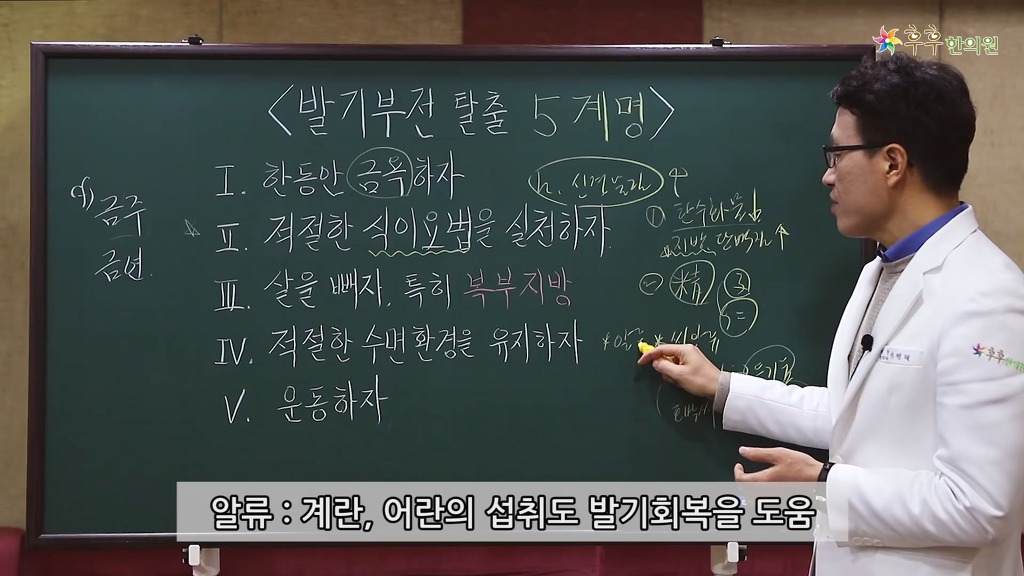 후후한의원
<발기부전 탈출 5계명>
I. 한동안 금욕하자
II. 적절한 식이요법을 실천하자
III. 살을 빼자, 특히 복부지방
IV. 적절한 수면환경을 유지하자
V. 운동하자
금주
금연
h. 신경전달
① 탄수화물↓
지방, 단백질↑
② 精
알류 : 계란, 어란의 섭취도 발기회복을 도움